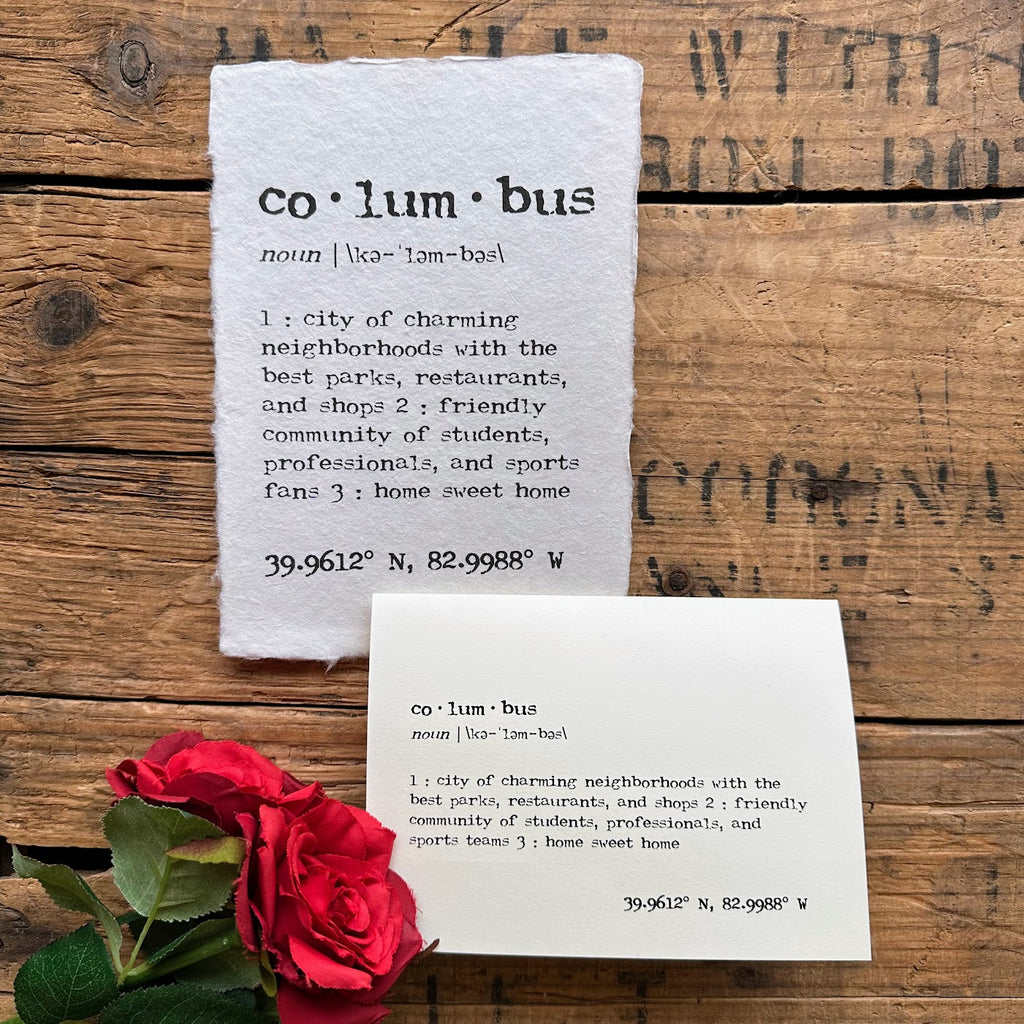 WITH
co·lum·bus
noun | \kə-ˈləm-bəs\
1 : city of charming
neighborhoods with the
best parks, restaurants,
and shops 2 : friendly
community of students,
professionals, and sports
fans 3 : home sweet home
39.9612° N, 82.9988° W
co·lum·bus
noun | \kə-ˈləm-bəs\
1 : city of charming neighborhoods with the
best parks, restaurants, and shops 2 : friendly
community of students, professionals, and
sports teams 3 : home sweet home
39.9612° N, 82.9988° W